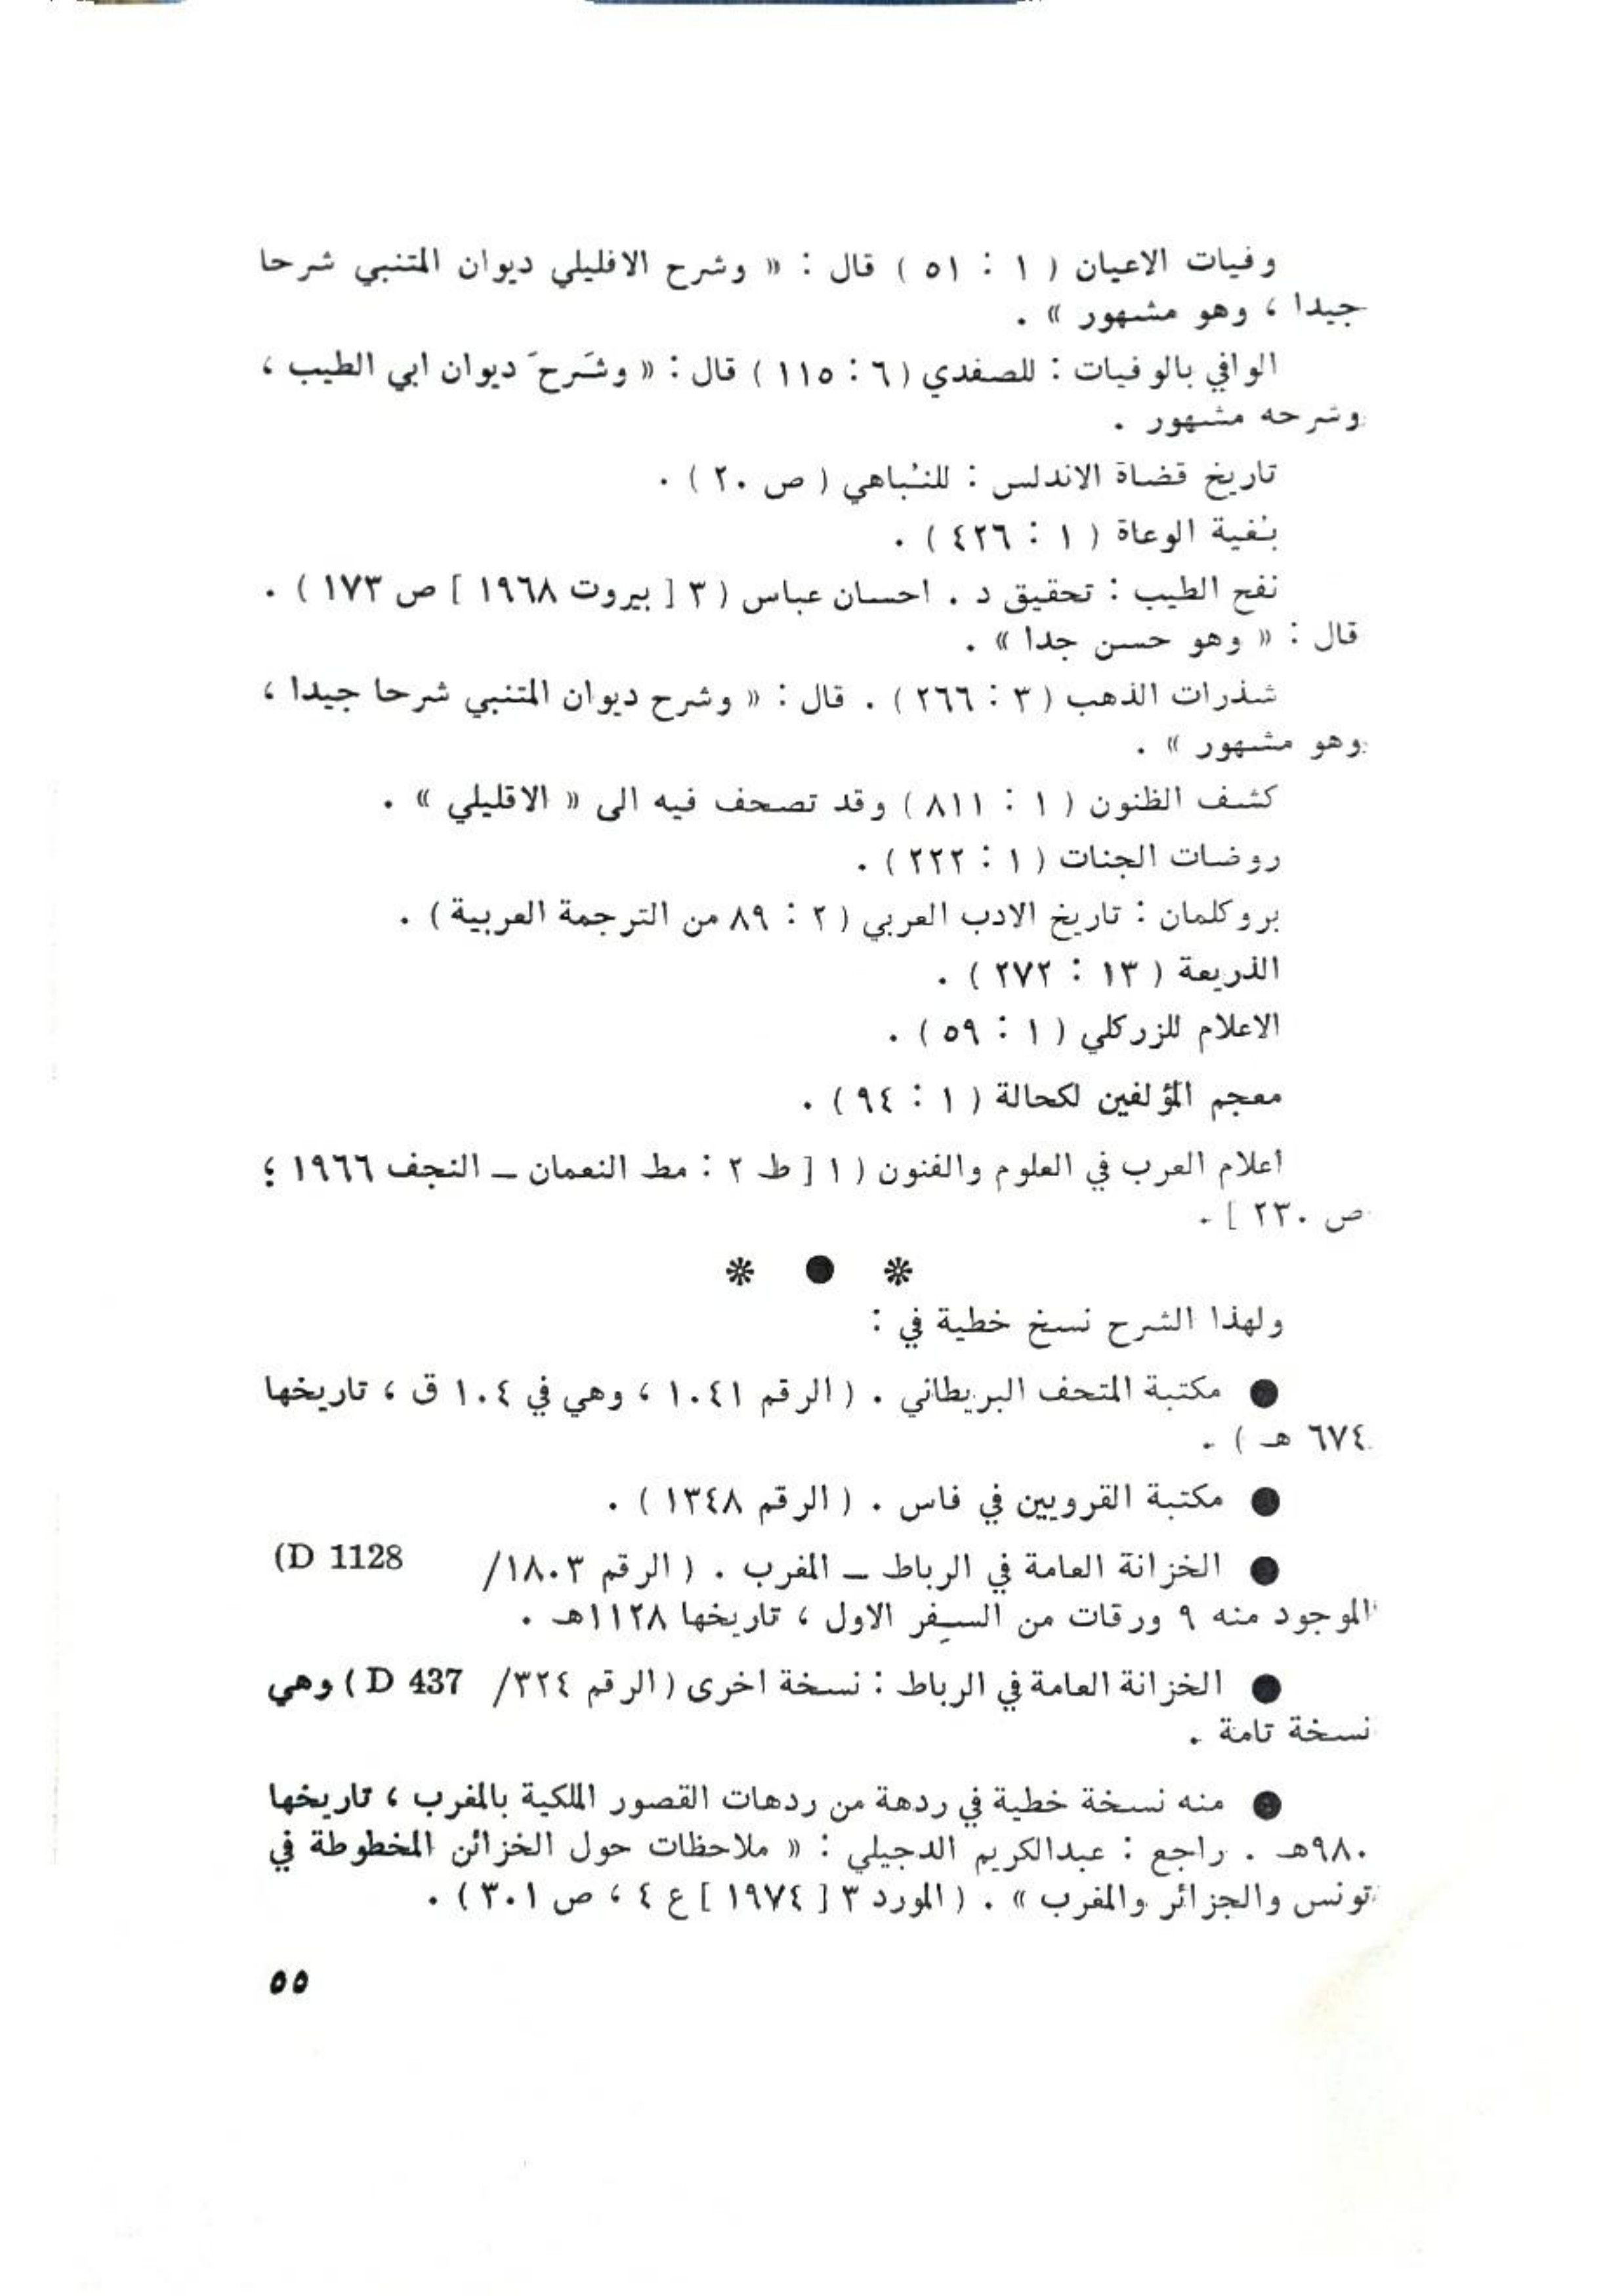 وفيات الاعيان ( ١ : ٥١ ) قال : « وشرح الافليلي ديوان المتنبي شرحا
جيدا ، وهو مشهور » .
الوافي بالوفيات : للصفدي ( ٦ : ١١٥ ) قال : « وشَرحَ ديوان ابي الطيب ،
وشرحه مشهور .
تاريخ قضاة الاندلس : للنُباهي ( ص ٢٠ ) .
بُغية الوعاة ( ١ : ٤٢٦ ) .
نفح الطيب : تحقيق د . احسان عباس ( ٣ [ بيروت ١٩٦٨ ] ص ١٧٣ ) .
قال : « وهو حسن جدا » .
شذرات الذهب ( ٣ : ٢٦٦ ) . قال : « وشرح ديوان المتنبي شرحا جيدا ،
وهو مشهور » .
كشف الظنون ( ١ : ٨١١ ) وقد تصحف فيه الى « الاقليلي » .
روضات الجنات ( ١ : ٢٢٢ ) .
بروكلمان : تاريخ الادب العربي ( ٢ : ٨٩ من الترجمة العربية ) .
الذريعة ( ١٣ : ٢٧٢ ) .
الاعلام للزركلي ( ١ : ٥٩ ) .
معجم المؤلفين لكحالة ( ١ : ٩٤ ) .
اعلام العرب في العلوم والفنون ( ١ [ ط ٢ : مط النعمان – النجف ١٩٦٦ ؛
ص ٢٣٠ ] .
* ● *
ولهذا الشرح نسخ خطية في :
● مكتبة المتحف البريطاني . ( الرقم ١٠٤١ ، وهي في ١٠٤ ق ، تاريخها
٦٧٤ هـ ) .
● مكتبة القرويين في فاس . ( الرقم ١٣٤٨ ) .
● الخزانة العامة في الرباط – المغرب . ( الرقم ١٨٠٣/ D 1128)
الموجود منه ٩ ورقات من السِفر الاول ، تاريخها ١١٢٨هـ .
● الخزانة العامة في الرباط : نسخة اخرى ( الرقم ٣٢٤/ D 437 ) وهي
نسخة تامة .
● منه نسخة خطية في ردهة من ردهات القصور الملكية بالمغرب ، تاريخها
٩٨٠هـ . راجع : عبدالكريم الدجيلي : « ملاحظات حول الخزائن المخطوطة في
تونس والجزائر والمغرب » . ( المورد ٣ [ ١٩٧٤ ] ع ٤ ، ص ٣٠١ ) .
٥٥